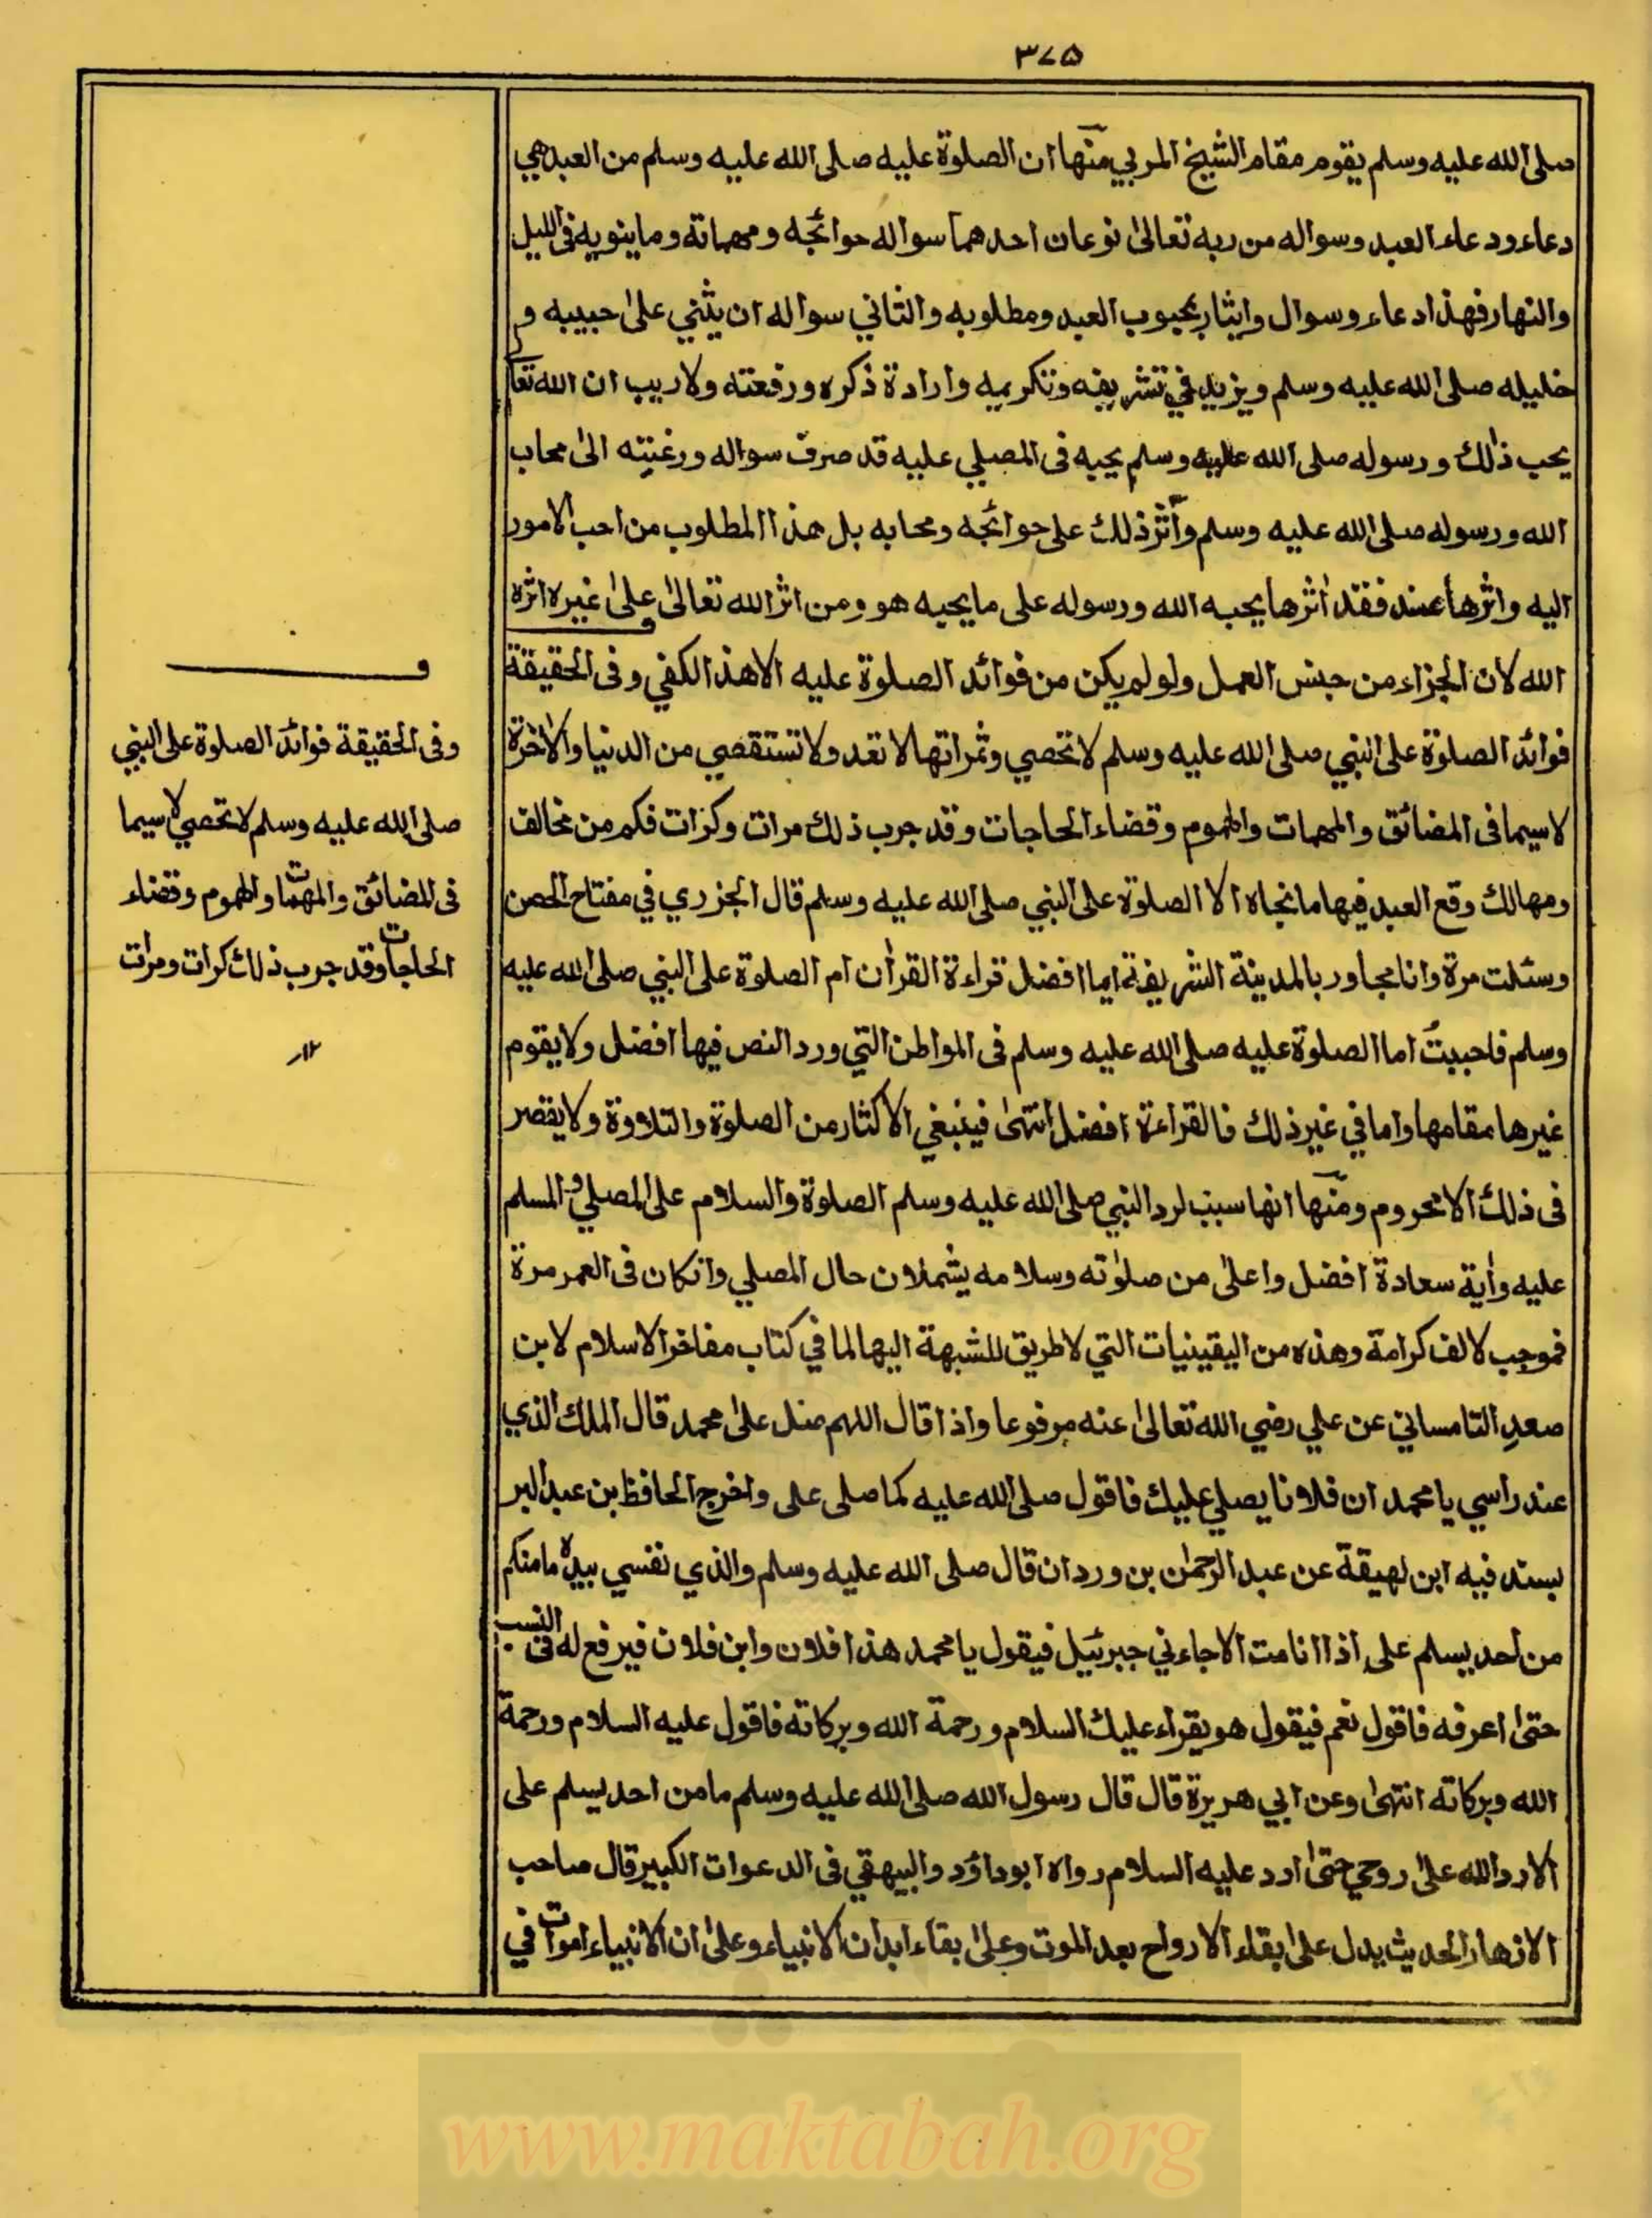 ٣٧٥
صلى الله عليه وسلم يقوم مقام الشيخ المربي منها ان الصلوة عليه صلى الله عليه وسلم من العبد هي
دعاء ودعاء العبد وسواله من ربه تعالى نوعان احدهما سواله حوائجه ومهماته وما ينويه فى الليل
والنهار فهذا دعاء وسوال وايثار بمحبوب العبد ومطلوبه والثاني سواله ان يثني على حبيبه و
خليله صلى الله عليه وسلم ويزيد في تشريفه وتكريمه وارادة ذكره ورفعته ولا ريب ان الله تعا
يحب ذلك ورسوله صلى الله عليه وسلم يحبه فى المصلي عليه قد صرف سواله ورغبته الى محاب
الله ورسوله صلى الله عليه وسلم وآثر ذلك على حوائجه ومحابه بل هذا المطلوب من احب الامور
اليه واثرها عنده فقد اثرها يحبه الله ورسوله على ما يحبه هو ومن اثر الله تعالى على غيره اثره
الله لان الجزاء من جنس العمل ولو لم يكن من فوائد الصلوة عليه الا هذا لكفي وفى الحقيقة
فوائد الصلوة على النبي صلى الله عليه وسلم لا تحصي وثمراتها لا تعد ولا تستقصي من الدنيا والاخرة
لاسيما فى المضائق والمهمات والهموم وقضاء الحاجات وقد جرب ذلك مرات وكرات فكم من مخالف
ومهالك وقع العبد فيها ما انجاه الا الصلوة على النبي صلى الله عليه وسلم قال الجزري في مفتاح الحصن
وسئلت مرة وانا مجاور بالمدينة الشريفة ايما افضل قراءة القران ام الصلوة على النبي صلى الله عليه
وسلم فاجبت اما الصلوة عليه صلى الله عليه وسلم فى المواطن التي ورد النص فيها افضل ولا يقوم
غيرها مقامها واما في غير ذلك فالقراءة افضل انتهى فينبغي الاكثار من الصلوة والتلاوة ولا يقصر
فى ذلك الا محروم ومنها انها سبب لرد النبي صلى الله عليه وسلم الصلوة والسلام على المصلي والمسلم
عليه واية سعادة افضل واعلى من صلوته وسلامه يشملان حال المصلي وانكان فى العمر مرة
فموجب لالف كرامة وهذه من اليقينيات التي لا طريق للشبهة اليها لما في كتاب مفاخر الاسلام لابن
صعد التلمساني عن علي رضي الله تعالى عنه مرفوعا واذا قال اللهم صل على محمد قال الملك الذي
عند راسي يا محمد ان فلانا يصلي عليك فاقول صلى الله عليه كما صلى على واخرج الحافظ بن عبد البر
بسند فيه ابن لهيقة عن عبد الرحمن بن وردان قال صلى الله عليه وسلم والذي نفسي بيده ما منكم
من احد يسلم على اذا انا مت الا جاءني جبرئيل فيقول يا محمد هذا فلان وابن فلان فيرفع له فى النسب
حتى اعرفه فاقول نعم فيقول هو يقراء عليك السلام ورحمة الله وبركاته فاقول عليه السلام ورحمة
الله وبركاته انتهى وعن ابي هريرة قال قال رسول الله صلى الله عليه وسلم ما من احد يسلم على
الا رد الله على روحي حتى ارد عليه السلام رواه ابو داؤد والبيهقي فى الدعوات الكبير قال صاحب
الازهار الحديث يدل على ابقاء الارواح بعد الموت وعلى بقاء ابدان الانبياء وعلى ان الانبياء اموات في
ف
وفى الحقيقة فوائد الصلوة على النبي
صلى الله عليه وسلم لا تحصي لاسيما
فى المضائق والمهمات والهموم وقضاء
الحاجات وقد جرب ذلك كرات ومرات
١٢
www.maktabah.org